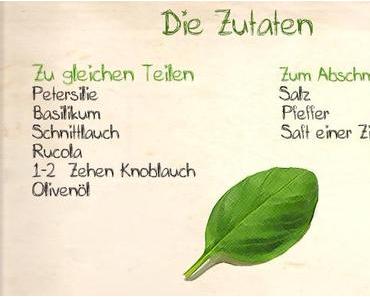 Die Zutaten
Zu gleichen Teilen
Petersilie
Basilikum
Schnittlauch
Rucola
1-2 Zehen Knoblauch
Olivenöl
Zum
Salz
Pfeffer
Saft einer